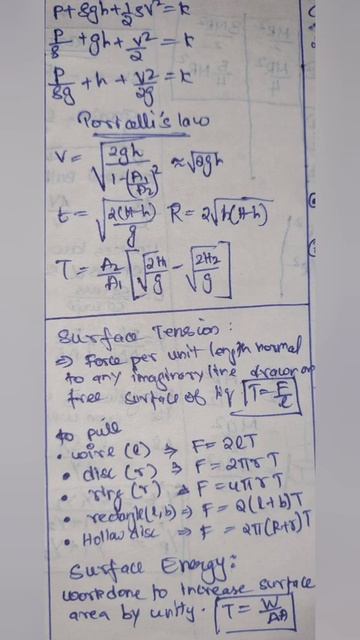 P+ρgh+1/2ρv²=k
P/ρ+gh+v²/2=k
P/ρg+h+v²/2g=k
Portalli's law
V=√(2gh/(1-(A₁/A₂)²))≈√2gh
t=√(2(H-h)/g) R=2√h(H-h)
T=A₂/A₁[√(2H/g)-√(2H₂/g)]
Surface Tension:
⇒ Force per unit length normal
to any imaginary line drawn on
free surface of liq T=F/l
to pull
• wire (l) ⇒ F=2lT
• disc (r) ⇒ F=2πrT
• ring (r) ⇒ F=4πrT
• rectangle(l,b) ⇒ F=2(l+b)T
• Hollow disc ⇒ F=2π(R+r)T
Surface Energy:
workdone to increase surface
area by unity. T=W/ΔA